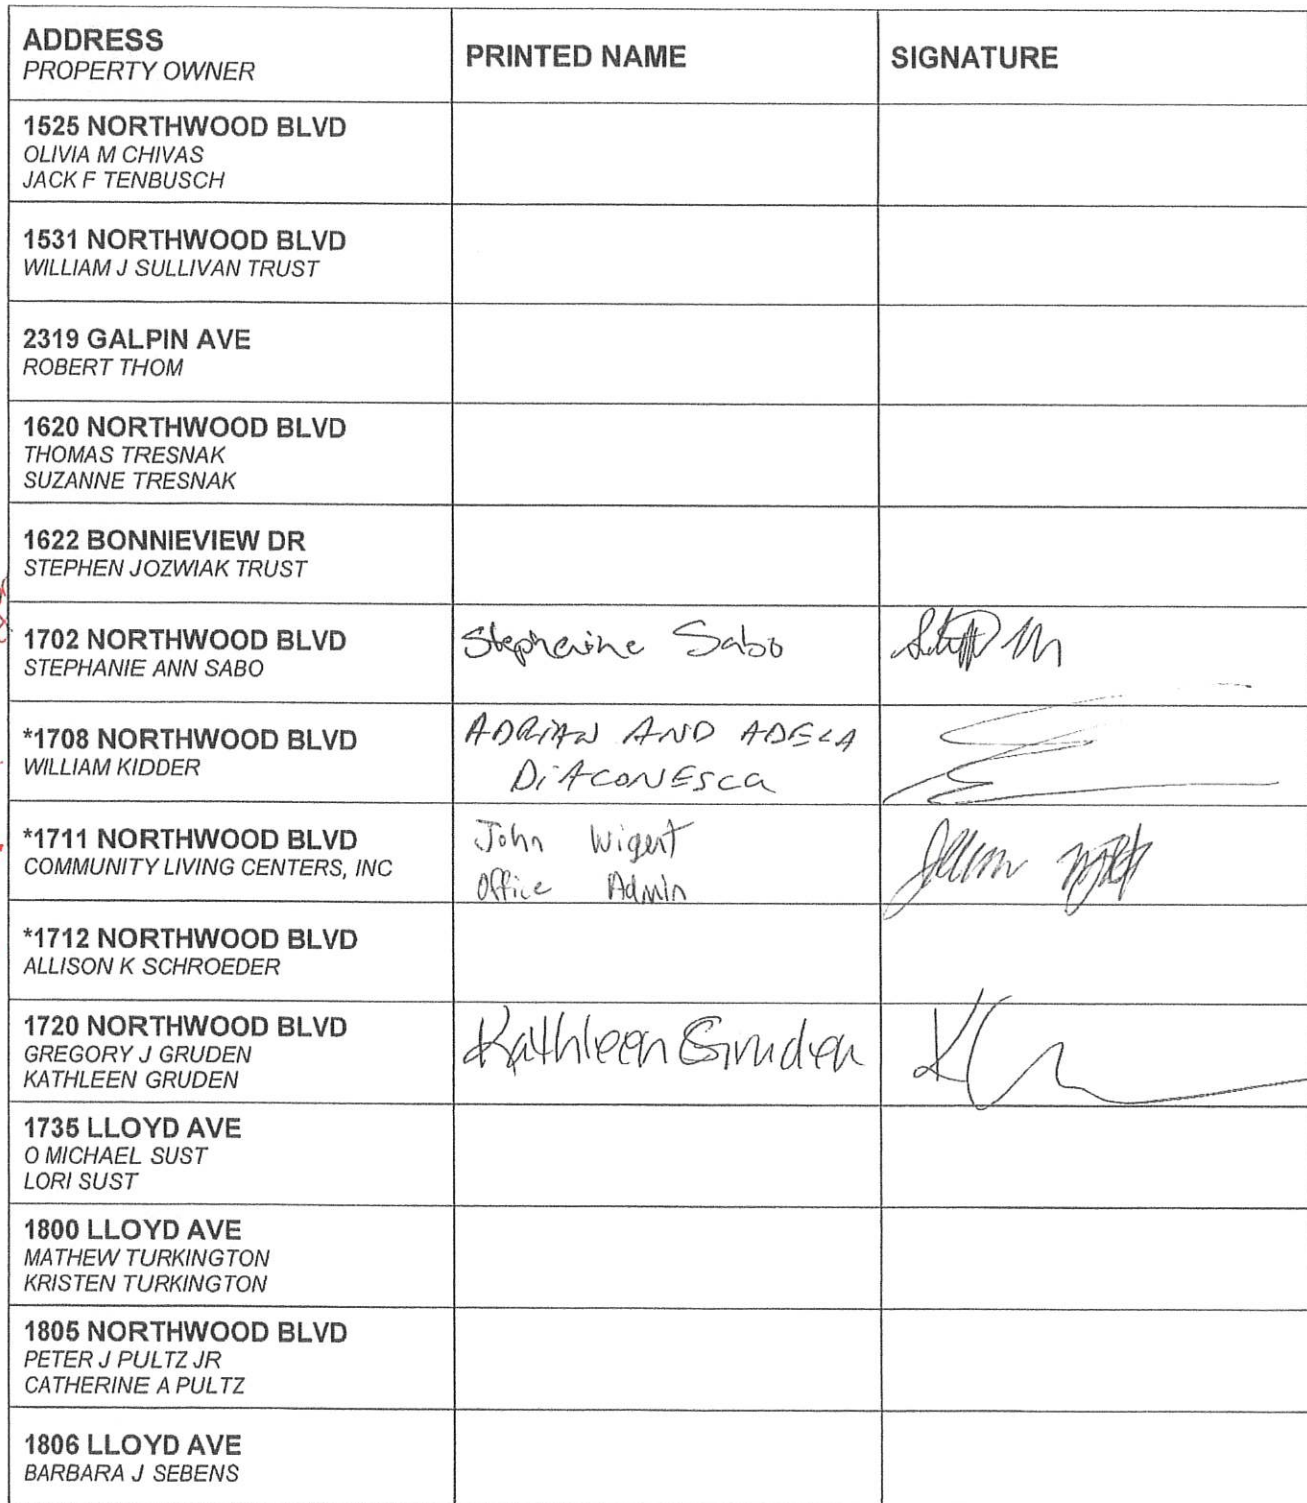 ADDRESS
PROPERTY OWNER
PRINTED NAME
SIGNATURE
1525 NORTHWOOD BLVD
OLIVIA M CHIVAS
JACK F TENBUSCH
1531 NORTHWOOD BLVD
WILLIAM J SULLIVAN TRUST
2319 GALPIN AVE
ROBERT THOM
1620 NORTHWOOD BLVD
THOMAS TRESNAK
SUZANNE TRESNAK
1622 BONNIEVIEW DR
STEPHEN JOZWIAK TRUST
1702 NORTHWOOD BLVD
STEPHANIE ANN SABO
Stephanine Sabo
*1708 NORTHWOOD BLVD
WILLIAM KIDDER
ADRIAN AND ADELA
DiACONESCa
*1711 NORTHWOOD BLVD
COMMUNITY LIVING CENTERS, INC
John Wigent
Office Admin
*1712 NORTHWOOD BLVD
ALLISON K SCHROEDER
1720 NORTHWOOD BLVD
GREGORY J GRUDEN
KATHLEEN GRUDEN
Kathleen Gruden
1735 LLOYD AVE
O MICHAEL SUST
LORI SUST
1800 LLOYD AVE
MATHEW TURKINGTON
KRISTEN TURKINGTON
1805 NORTHWOOD BLVD
PETER J PULTZ JR
CATHERINE A PULTZ
1806 LLOYD AVE
BARBARA J SEBENS